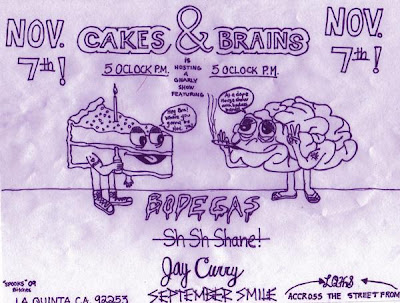 NOV.
7th!
CAKES & BRAINS
NOV.
7th!
5 OCLOCK P.M.
IS
HOSTING
A
GNARLY
SHOW
FEATURING
5 OCLOCK P.M.
Hey Bra!
where you
gonna be
Nov. 7th?
At a dope
BODEGAS
Sh Sh Shane!
Jay Curry
SEPTEMBER SMILE
"SPOOKS" 09
Bitches
LA QUINTA CA. 92253
LQHS
ACCROSS THE STREET FROM